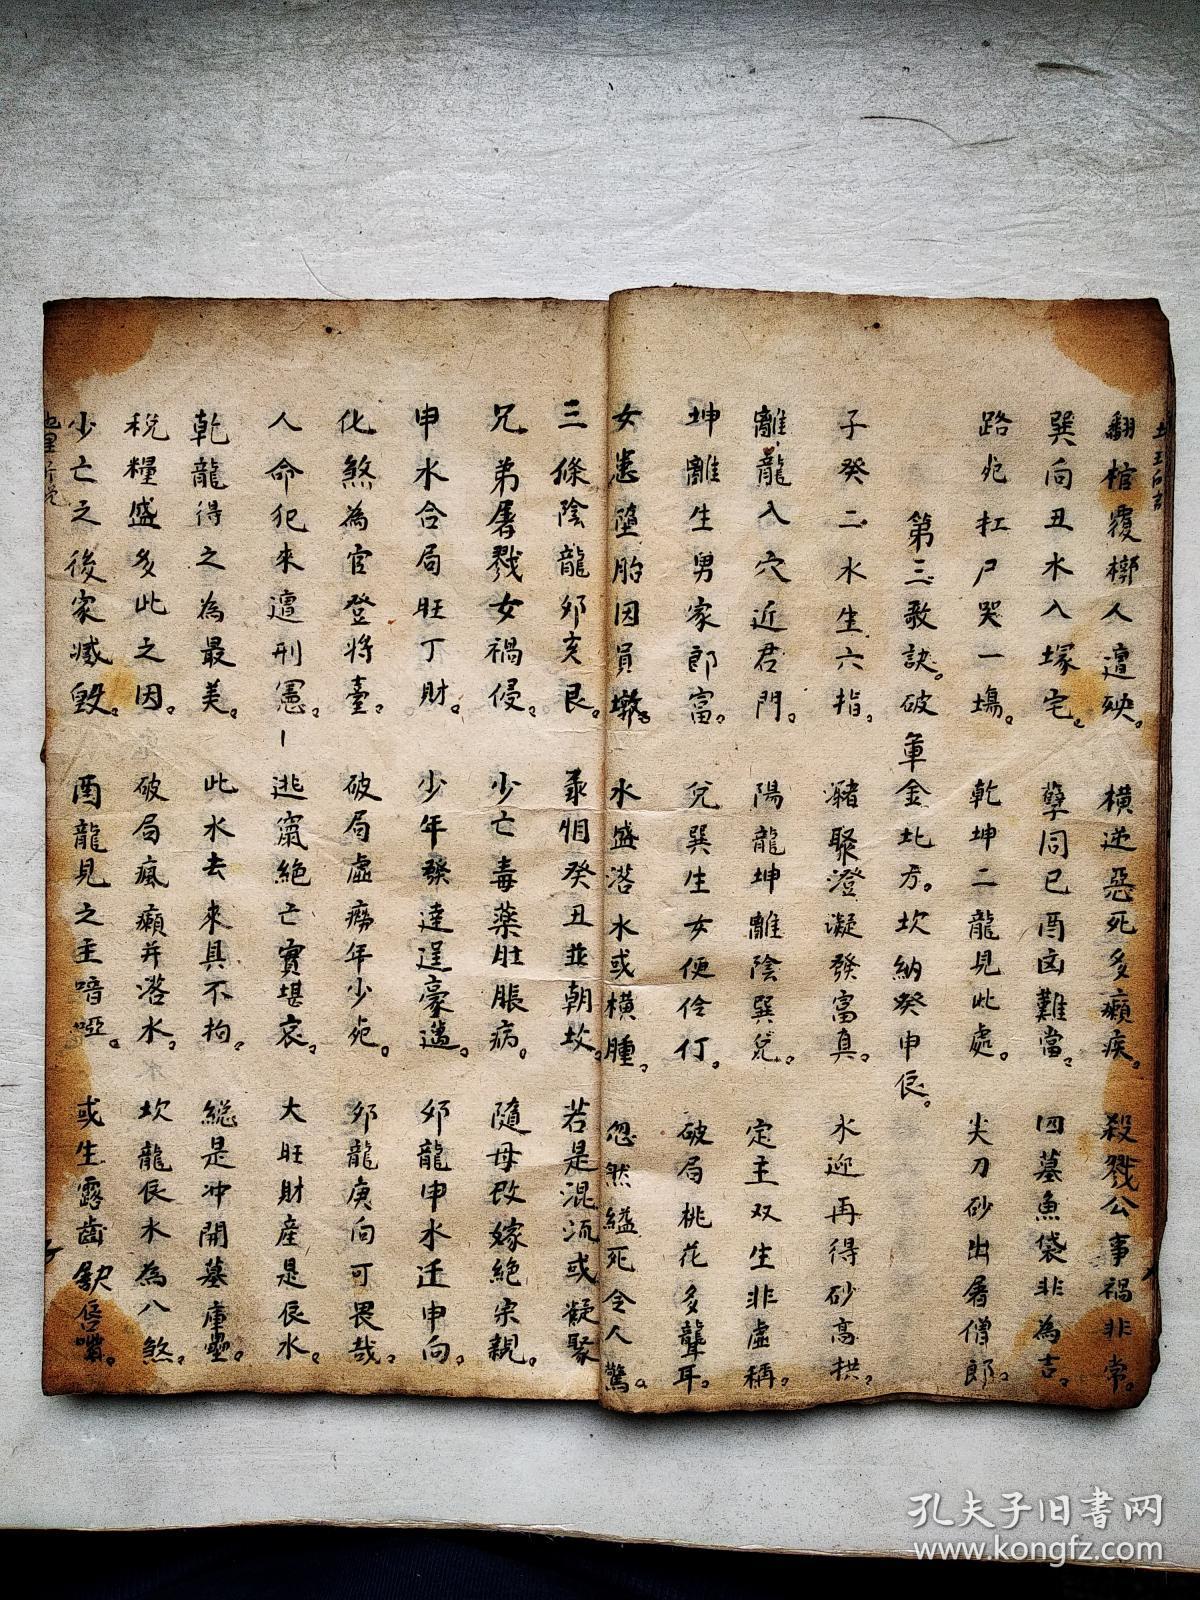 翻棺覆槨人遭殃。橫逆惡死多癩疾。殺戮公事禍非常。
巽向丑水入塚宅。孽同巳酉凶難當。四墓魚袋非為吉。
路死扛尸哭一場。乾坤二龍見此處。尖刀砂出屠僧郎。
第三歌訣。破軍金北方。坎納癸申辰。
子癸二水生六指。瀦聚澄凝發富真。水迎再得砂高拱。
離龍入穴近君門。陽龍坤離陰巽兌。定主双生非虛稱。
坤離生男家郎富。兌巽生女便伶仃。破局桃花多聾耳。
女患墮胎因員墩。水盛落水或橫腫。忽然縊死令人驚。
三條陰龍卯亥艮。癸丑並朝坟。若是混流或凝聚
兄弟屠戮女禍侵。少亡毒藥肚脹病。隨母改嫁絕宗親。
申水合局旺丁財。少年發達逞豪邁。卯龍申水迁申向。
化煞為官登將臺。破局虛癆年少死。卯龍庚向可畏哉。
人命犯來遭刑憲。逃竄絕亡實堪哀。大旺財產是辰水。
乾龍得之為最美。此水去來具不拘。總是冲開墓庫壘。
稅糧盛多此之因。破局瘋癲并落水。坎龍辰水為八煞。
少亡之後家滅毀。酉龍見之主喑啞。或生露齒缺唇嘴。
孔夫子旧书网
www.kongfz.com